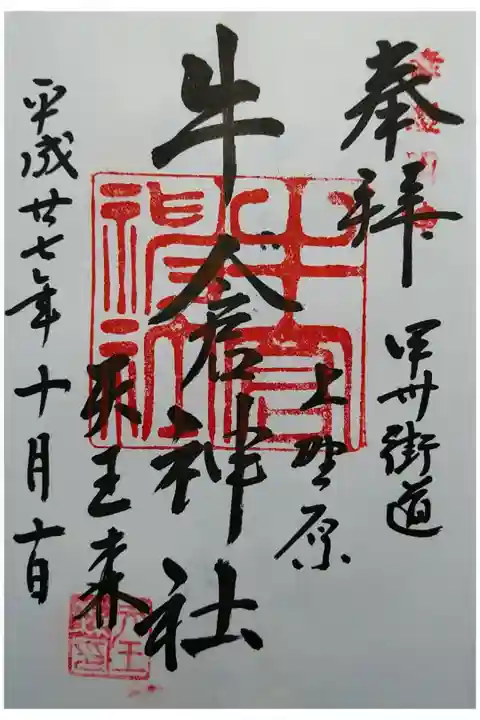 奉拝
甲州街道
上野原
牛倉神社
天王森
平成廿七年十月十日
牛倉神社